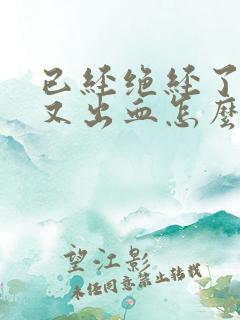 已经绝经了
又出血怎麽
望江影
未经同意禁止转载